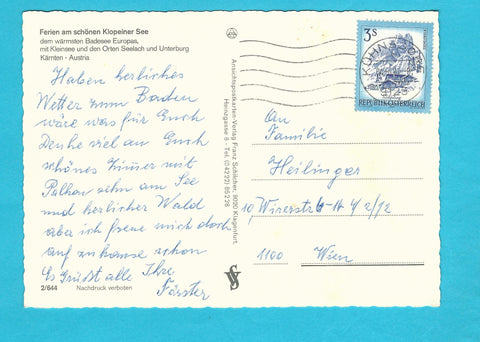 Ferien am schönen Klopeiner See
dem wärmsten Badesee Europas,
mit Kleinsee und den Orten Seelach und Unterburg
Kärnten · Austria
Haben herliches
Wetter zum Baden
wäre was für Euch
Denke viel an Euch
schönes Zimmer mit
Palkon sehn am See
und herlicher Wald
aber ich freue mich doch
auf zuhause schon
Es Grüßt alle Ihre
Förster
2/644 Nachdruck verboten
Ansichtspostkarten-Verlag Franz Schilcher, 9020 Klagenfurt,
Heinzgasse 8 - Tel. (04222) 85228
3 S
REPUBLIK ÖSTERREICH
An
Familie
Heilinger
10, Wirerstr
1100 Wien